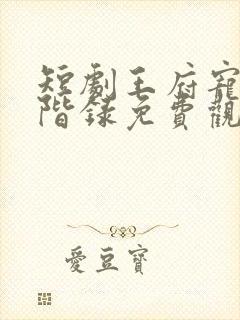 短劇王府寵
階錄免費觀
愛豆寶